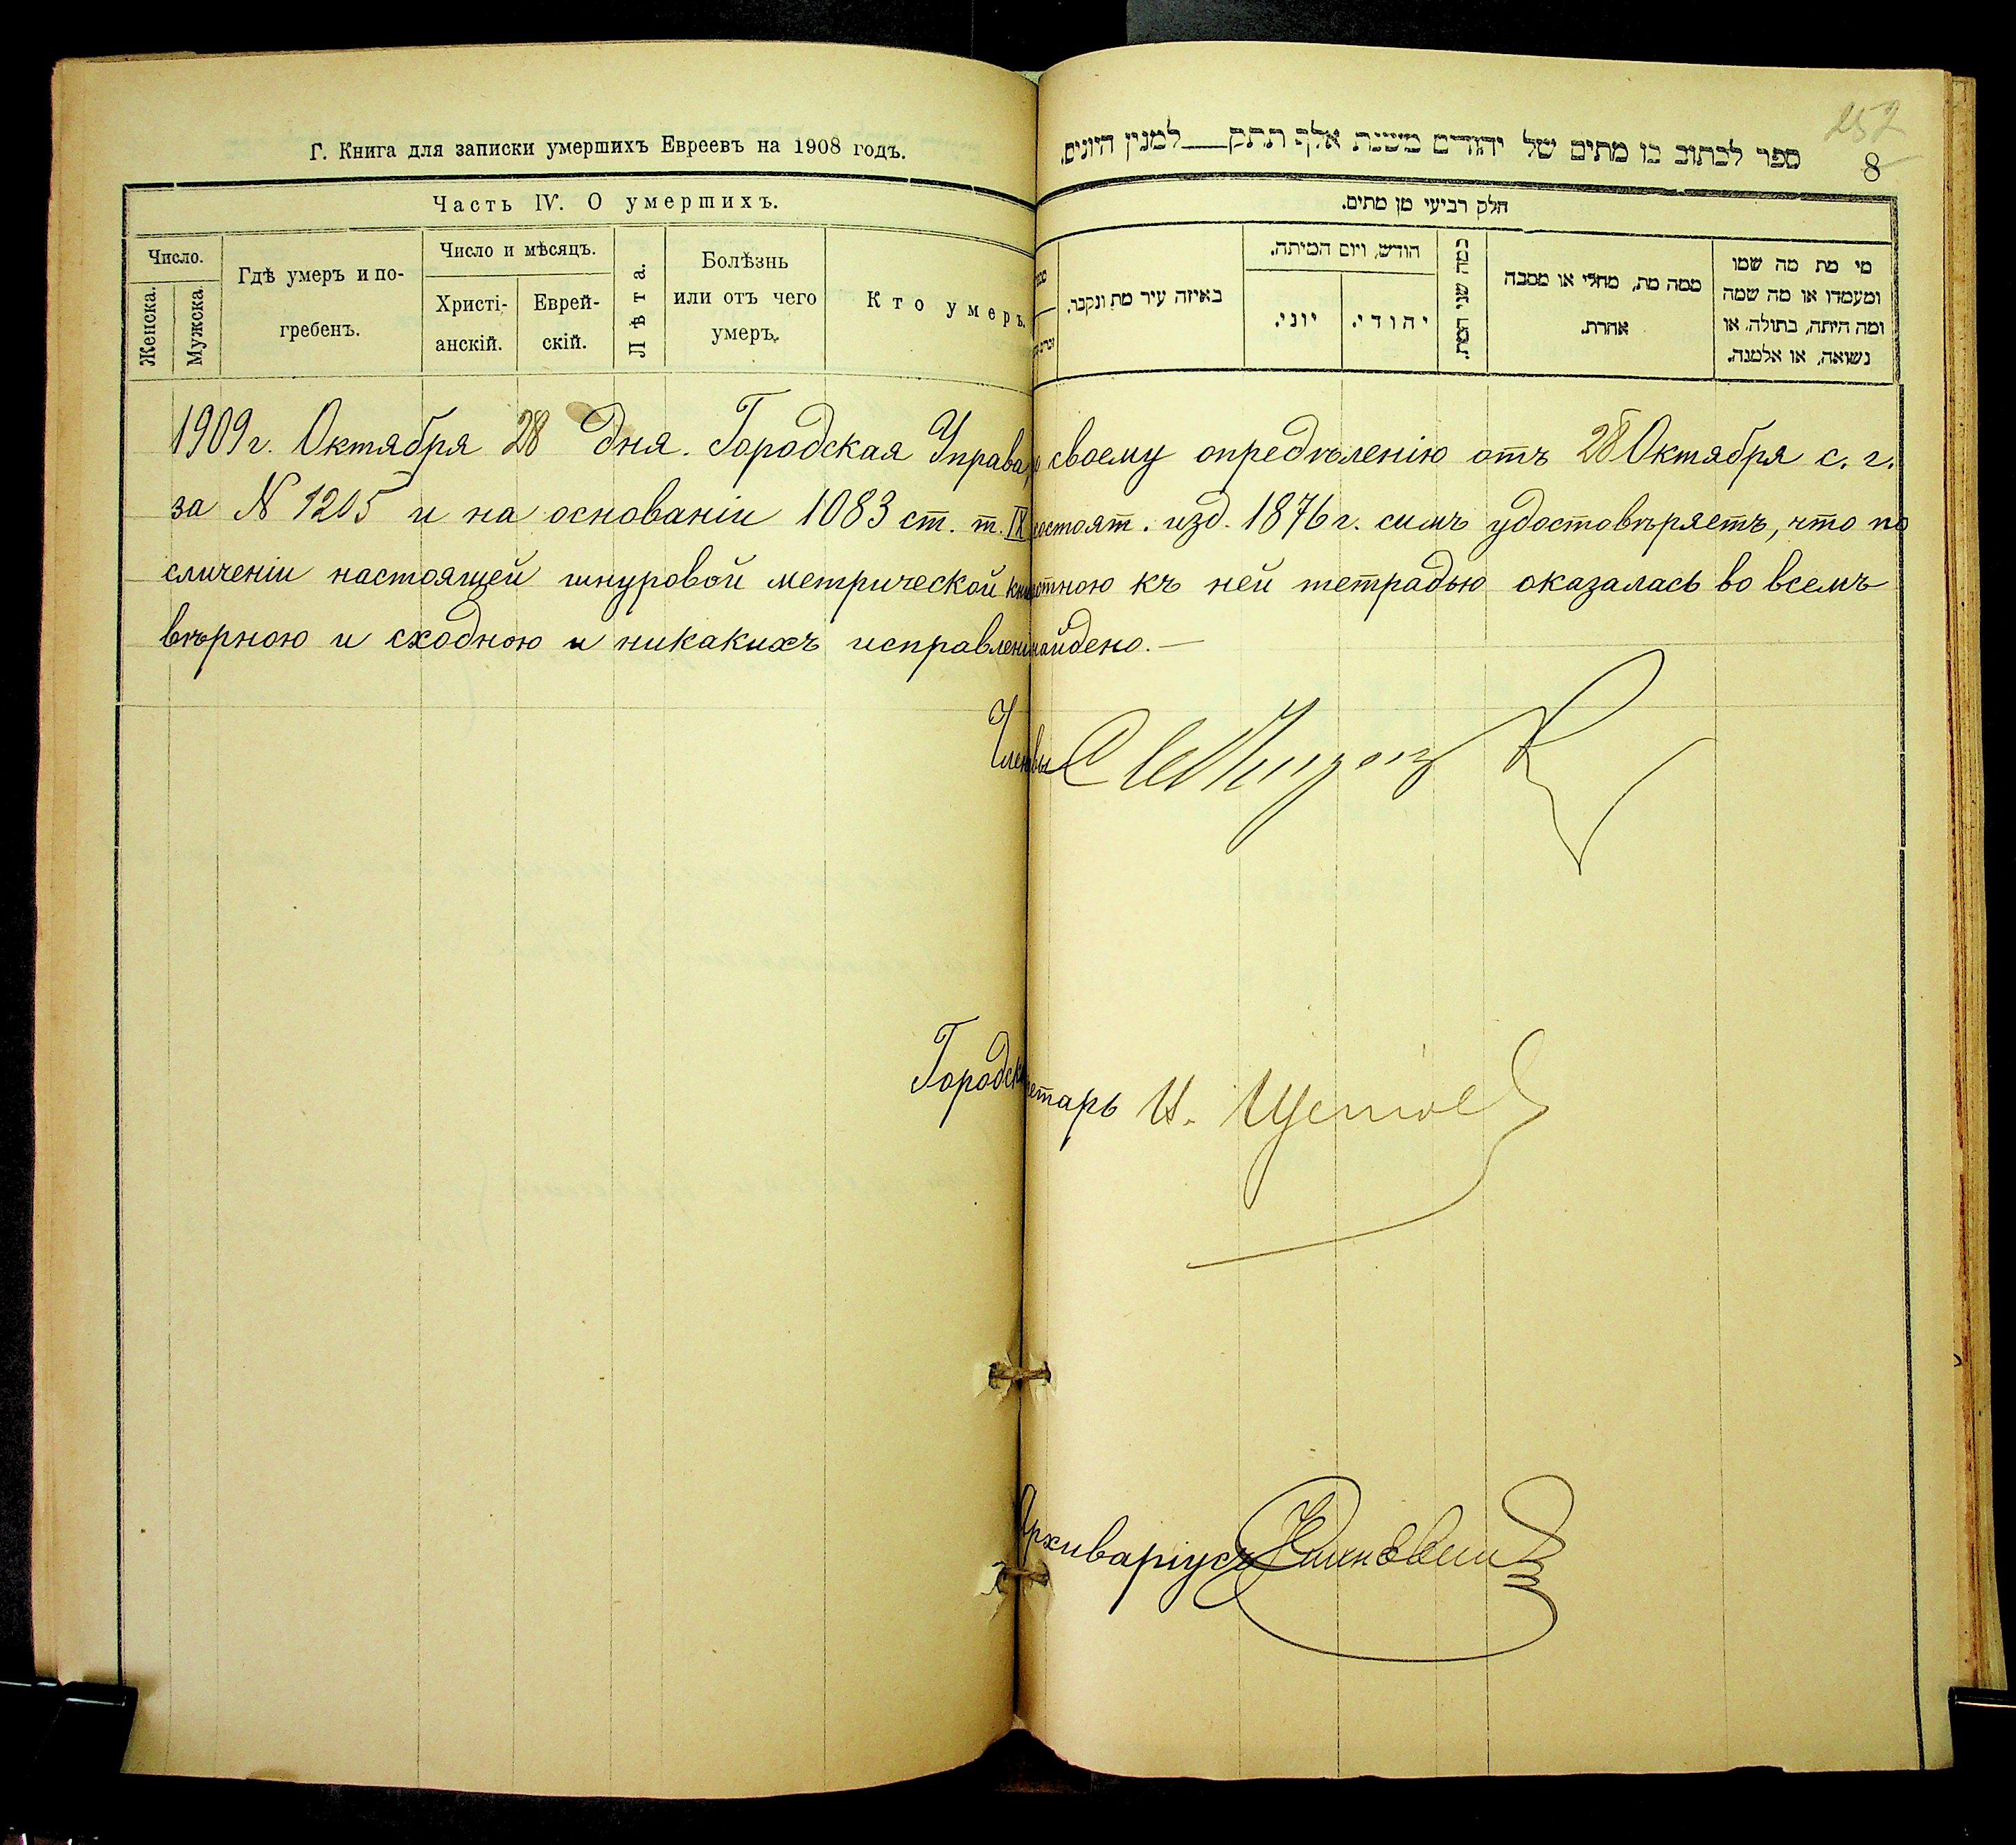 Г. Книга для записки умершихъ Евреевъ на 1908 годъ.
Часть IV. О умершихъ.
Число.
Женска.
Мужска.
Гдѣ умеръ и по-
гребенъ.
Число и мѣсяцъ.
Христі-
анскій.
Еврей-
скій.
Лѣта.
Болѣзнь
или отъ чего
умеръ.
Кто умеръ.
252
8
ספר לכתוב בו מתים של יהודים משנת אלף תתק למנין היונים.
חלק רביעי מן מתים.
באיזה עיר מת ונקבר.
חודש, ויום המיתה.
יוני.
יהודי.
כמה שני המת.
ממה מת, מחלי או מסבה
אחרת.
מי מת מה שמו
ומעמדו או מה שמה
ומה היתה, בתולה, או
נשואה, או אלמנה.
1909 г. Октября 28 дня. Городская Управа, своему опредѣленію отъ 28 Октября с. г.
за № 1205 и на основаніи 1083 ст. т. IX состоят. изд. 1876 г. симъ удостовѣряетъ, что по
сличеніи настоящей шнуровой метрической къ ней тетрадью оказалась во всемъ
вѣрною и сходною и никакихъ исправлені найдено. —
Члены
Городск етарь И.
Архиваріусъ